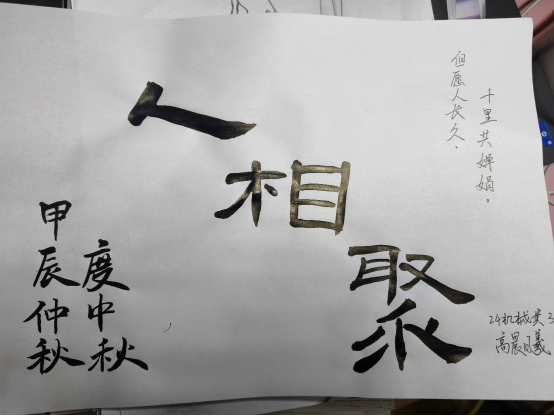 人
相
聚
度中秋
甲辰仲秋
但愿人长久，
十里共婵娟。
24机械类3
高晨曦